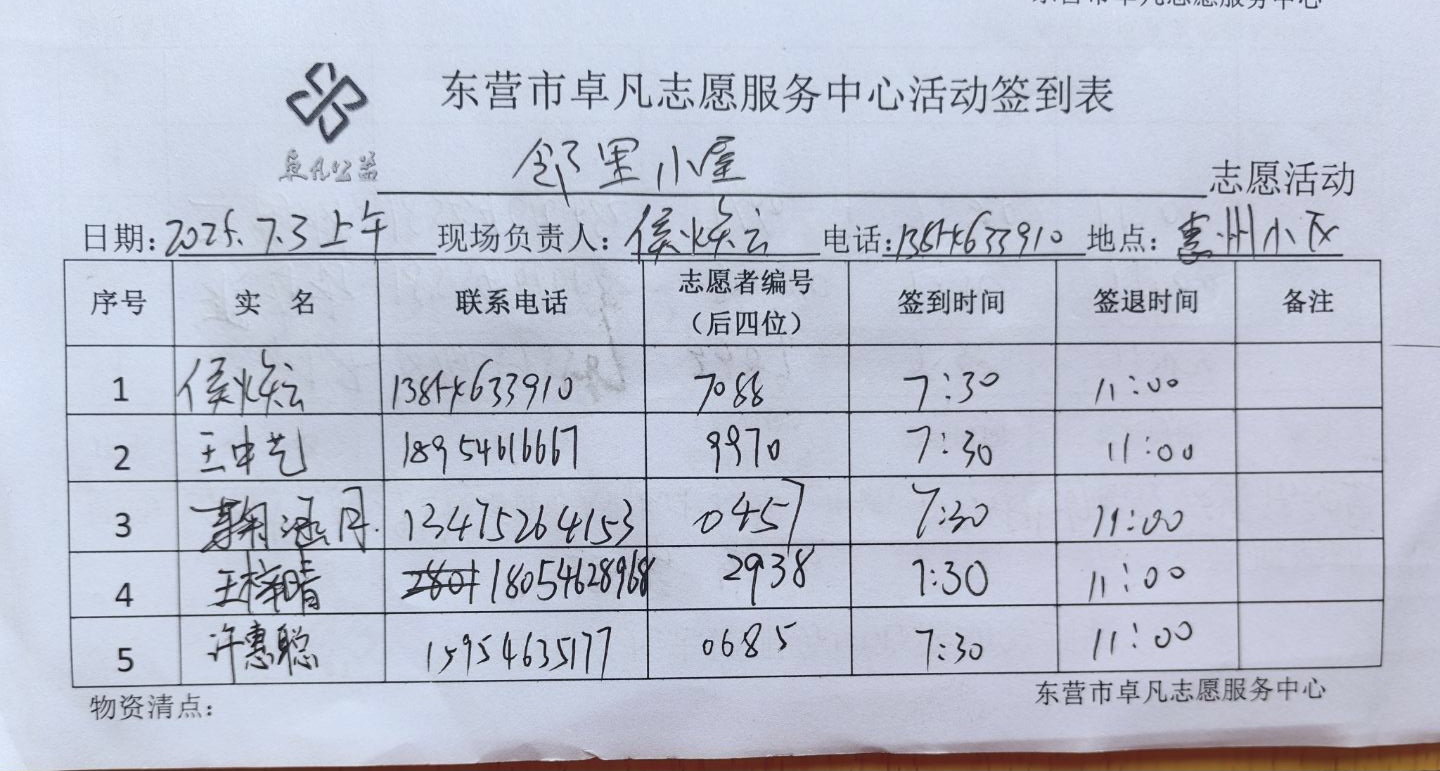 东营市卓凡志愿服务中心
东营市卓凡志愿服务中心活动签到表
卓凡公益
邻里小屋 志愿活动
日期：2025.7.3上午 现场负责人：侯焕云 电话：13854633910 地点：惠州小区
序号 实 名 联系电话 志愿者编号（后四位） 签到时间 签退时间 备注
1 侯焕云 13854633910 7088 7:30 11:00
2 王中艺 18954616667 9970 7:30 11:00
3 鞠涵月 13475264153 0457 7:30 11:00
4 王梓晴 18054628968 2938 7:30 11:00
5 许惠聪 15954635177 0685 7:30 11:00
物资清点： 东营市卓凡志愿服务中心